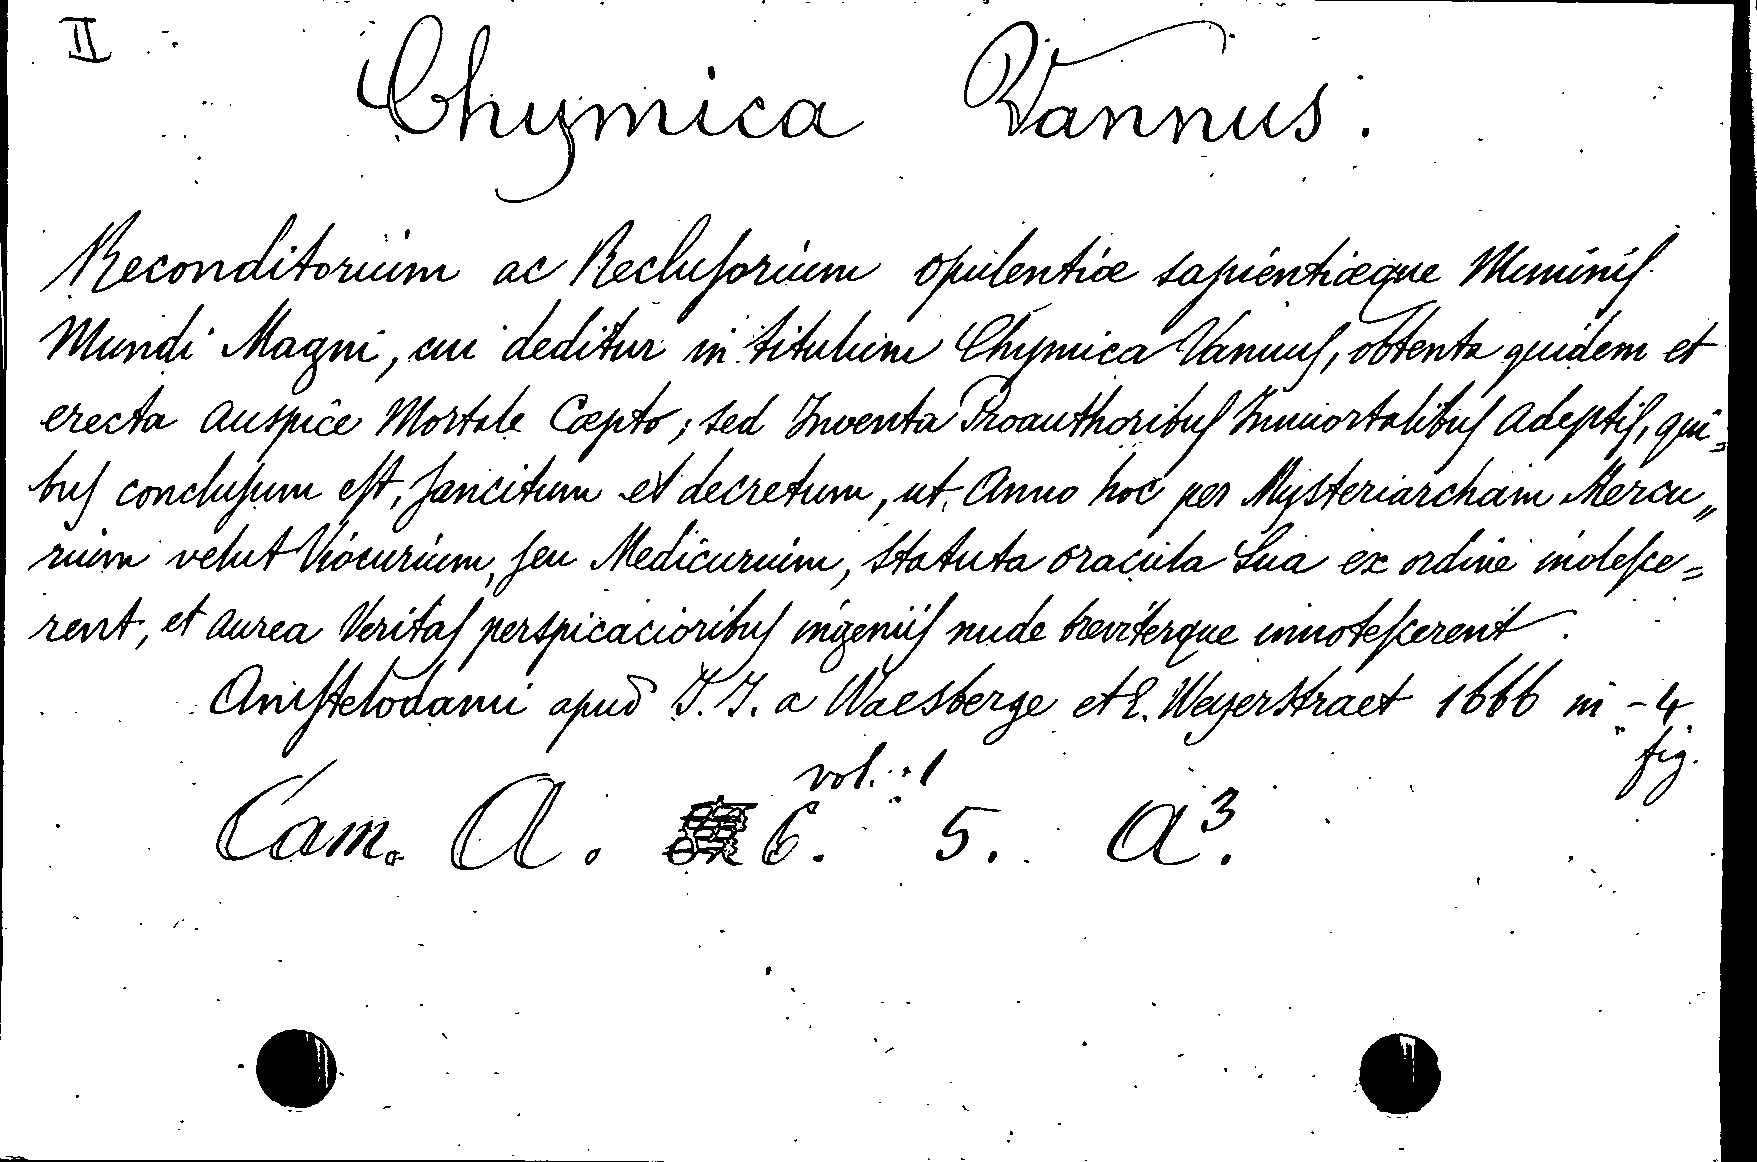 II
Chymica Vannus.
Reconditorium ac Recluſorium opulentiæ sapientiæque Numinis
Mundi Magni, cui deditur in titulum Chymica Vannuſ, obtenta quidem et
erecta auspice Mortale Cœpto; sed Inventa Proauthoribuſ Immortalibuſ adeptiſ, qui=
buſ concluſum eſt, ſancitum et decretum, ut anno hoc per Mysteriarcham Mercu„
rium velut Viocurium, ſeu Medicurium, statuta oracula Sua ex ordine inoleſce=
rent, et aurea Veritaſ perspicacioribuſ ingeniiſ nude breviterque innoteſcerent.
Amſtelodami apud J. J. a Waesberge et E. Weyerstraet 1666 in -4
fig.
vol. 1
Cam. A. 6. 5. a³.